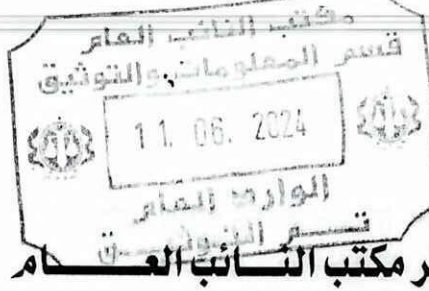 مكتب النائب العام
قسم المعلومات والتوثيق
11. 06. 2024
الوارد العام
قسم التوثيق
ر مكتب النـــائب العـــــــام